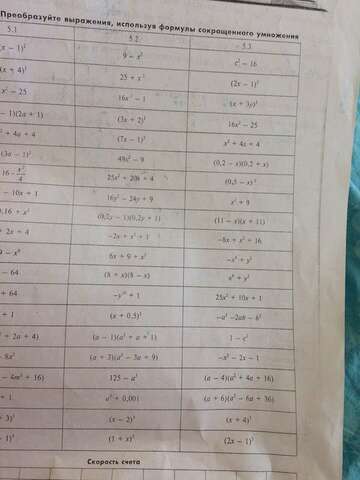 Преобразуйте выражения, используя формулы сокращенного умножения
5.1 5.2 5.3
(x − 1)² 9 − x² c² − 16
(x + 4)² 25 + x² (2x − 1)²
x² − 25 16x² − 1 (x + 3y)²
− 1)(2a + 1) (3x + 2)² 16x² − 25
+ 4a + 4 (7x − 1)² x² + 4x + 4
(3a − 2)² 49x² − 9 (0,2 − x)(0,2 + x)
16 − x²/4 25x² + 20x + 4 (0,5 − x)²
− 10x + 1 16y² − 24y + 9 x² + 9
0,16 + x² (0,2y − 1)(0,2y + 1) (11 − x)(x + 11)
+ 2x + 4 −2x + x² + 1 −8x + x² + 16
9 − x⁶ 6x + 9 + x² −x⁴ + y²
− 64 (8 + x)(8 − x) x⁶ + y²
+ 64 + 1 25x² + 10x + 1
+ 1 (x + 0,5)² −a² −2ab − b²
+ 2a + 4) (a − 1)(a² + a + 1) 1 − c³
− 8x³ (a + 3)(a² − 3a + 9) −x² − 2x − 1
− 4m² + 16) 125 − a³ (a − 4)(a² + 4a + 16)
+ 1 a³ + 0,001 (a + 6)(a² − 6a + 36)
+ 3)³ (x − 2)³ (x + 4)³
− 1)³ (1 + x)³ (2x − 1)³
Скорость счета